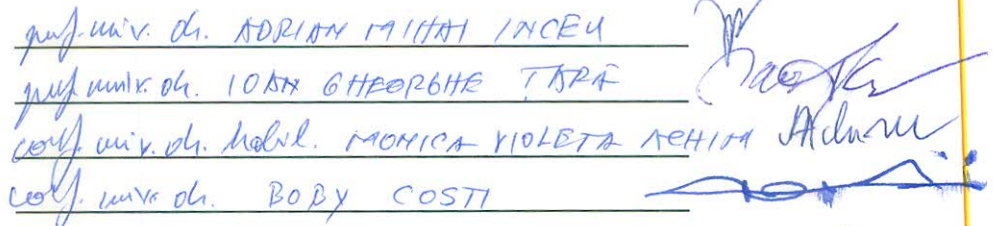 prof. univ. dr. ADRIAN MIHAI INCEU
prof. univ. dr. IOAN GHEORGHE ŢARĂ
conf. univ. dr. habil. MONICA VIOLETA ACHIM Achim
conf. univ. dr. BOBY COSTI